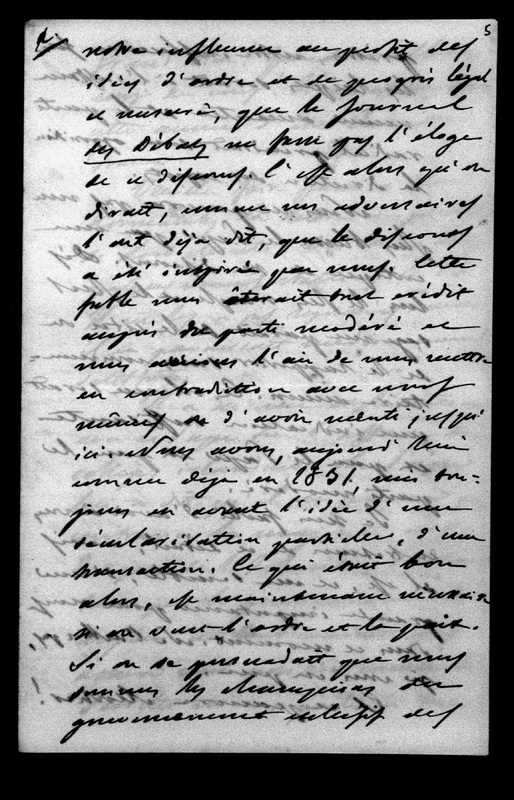 5
notre influence au profit des
idées d'ordre et de progrès légal
et mesuré, que le Journal
des Débats ne fasse pas l'éloge
de ce discours. C'est alors qu'on
dirait, comme nos adversaires
l'ont déjà dit, que le discours
a été inspiré par nous. Cette
fable nous ôterait tout crédit
auprès du parti modéré et
nous aurions l'air de nous mettre
en contradiction avec nous
mêmes ou d'avoir menti jusqu'
ici. Nous avons, aujourd'hui
comme déjà en 1831, mis tou-
jours en avant l'idée d'une
sécularisation partielle, d'une
transaction. Ce qui était bon
alors, est maintenant nécessaire
si on veut l'ordre et la paix.
Si on se persuadait que nous
sommes les
gouvernement exclusif des